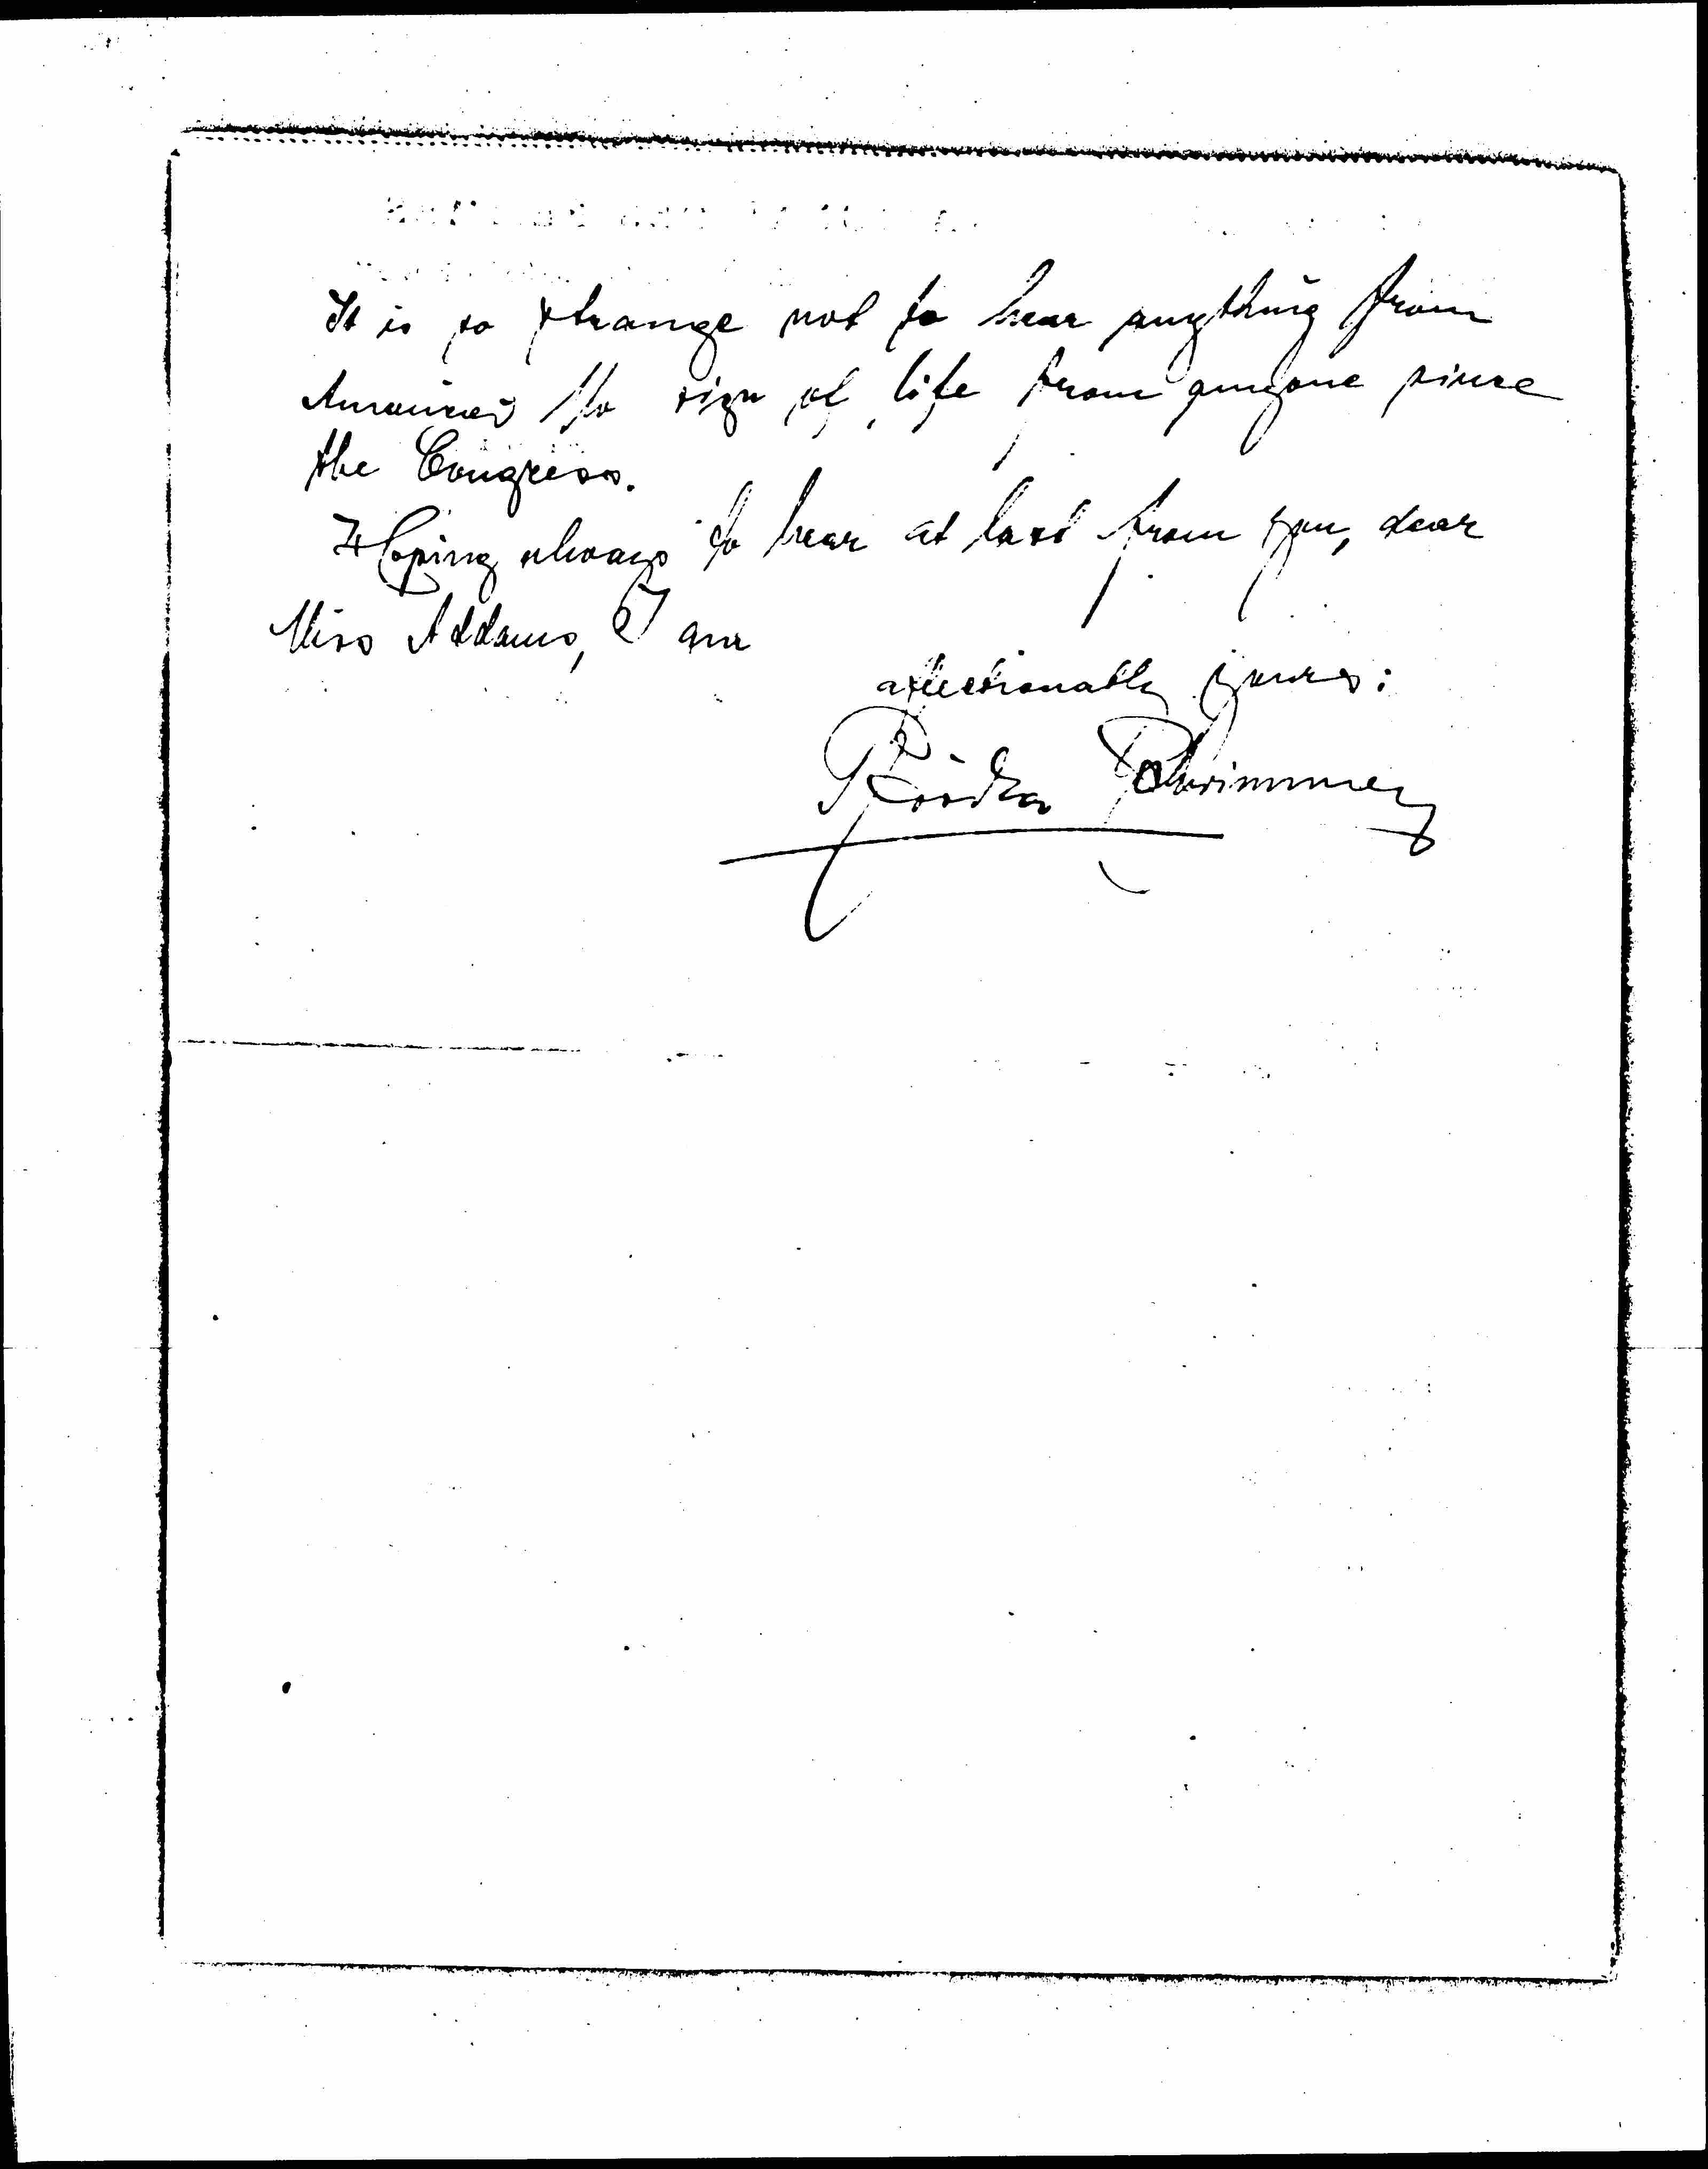 It is so strange not to hear anything from
America No sign of life from anyone since
the Congress.
Hoping always to hear at last from you, dear
Miss Addams, I am
affectionately yours:
Rosika Schwimmer